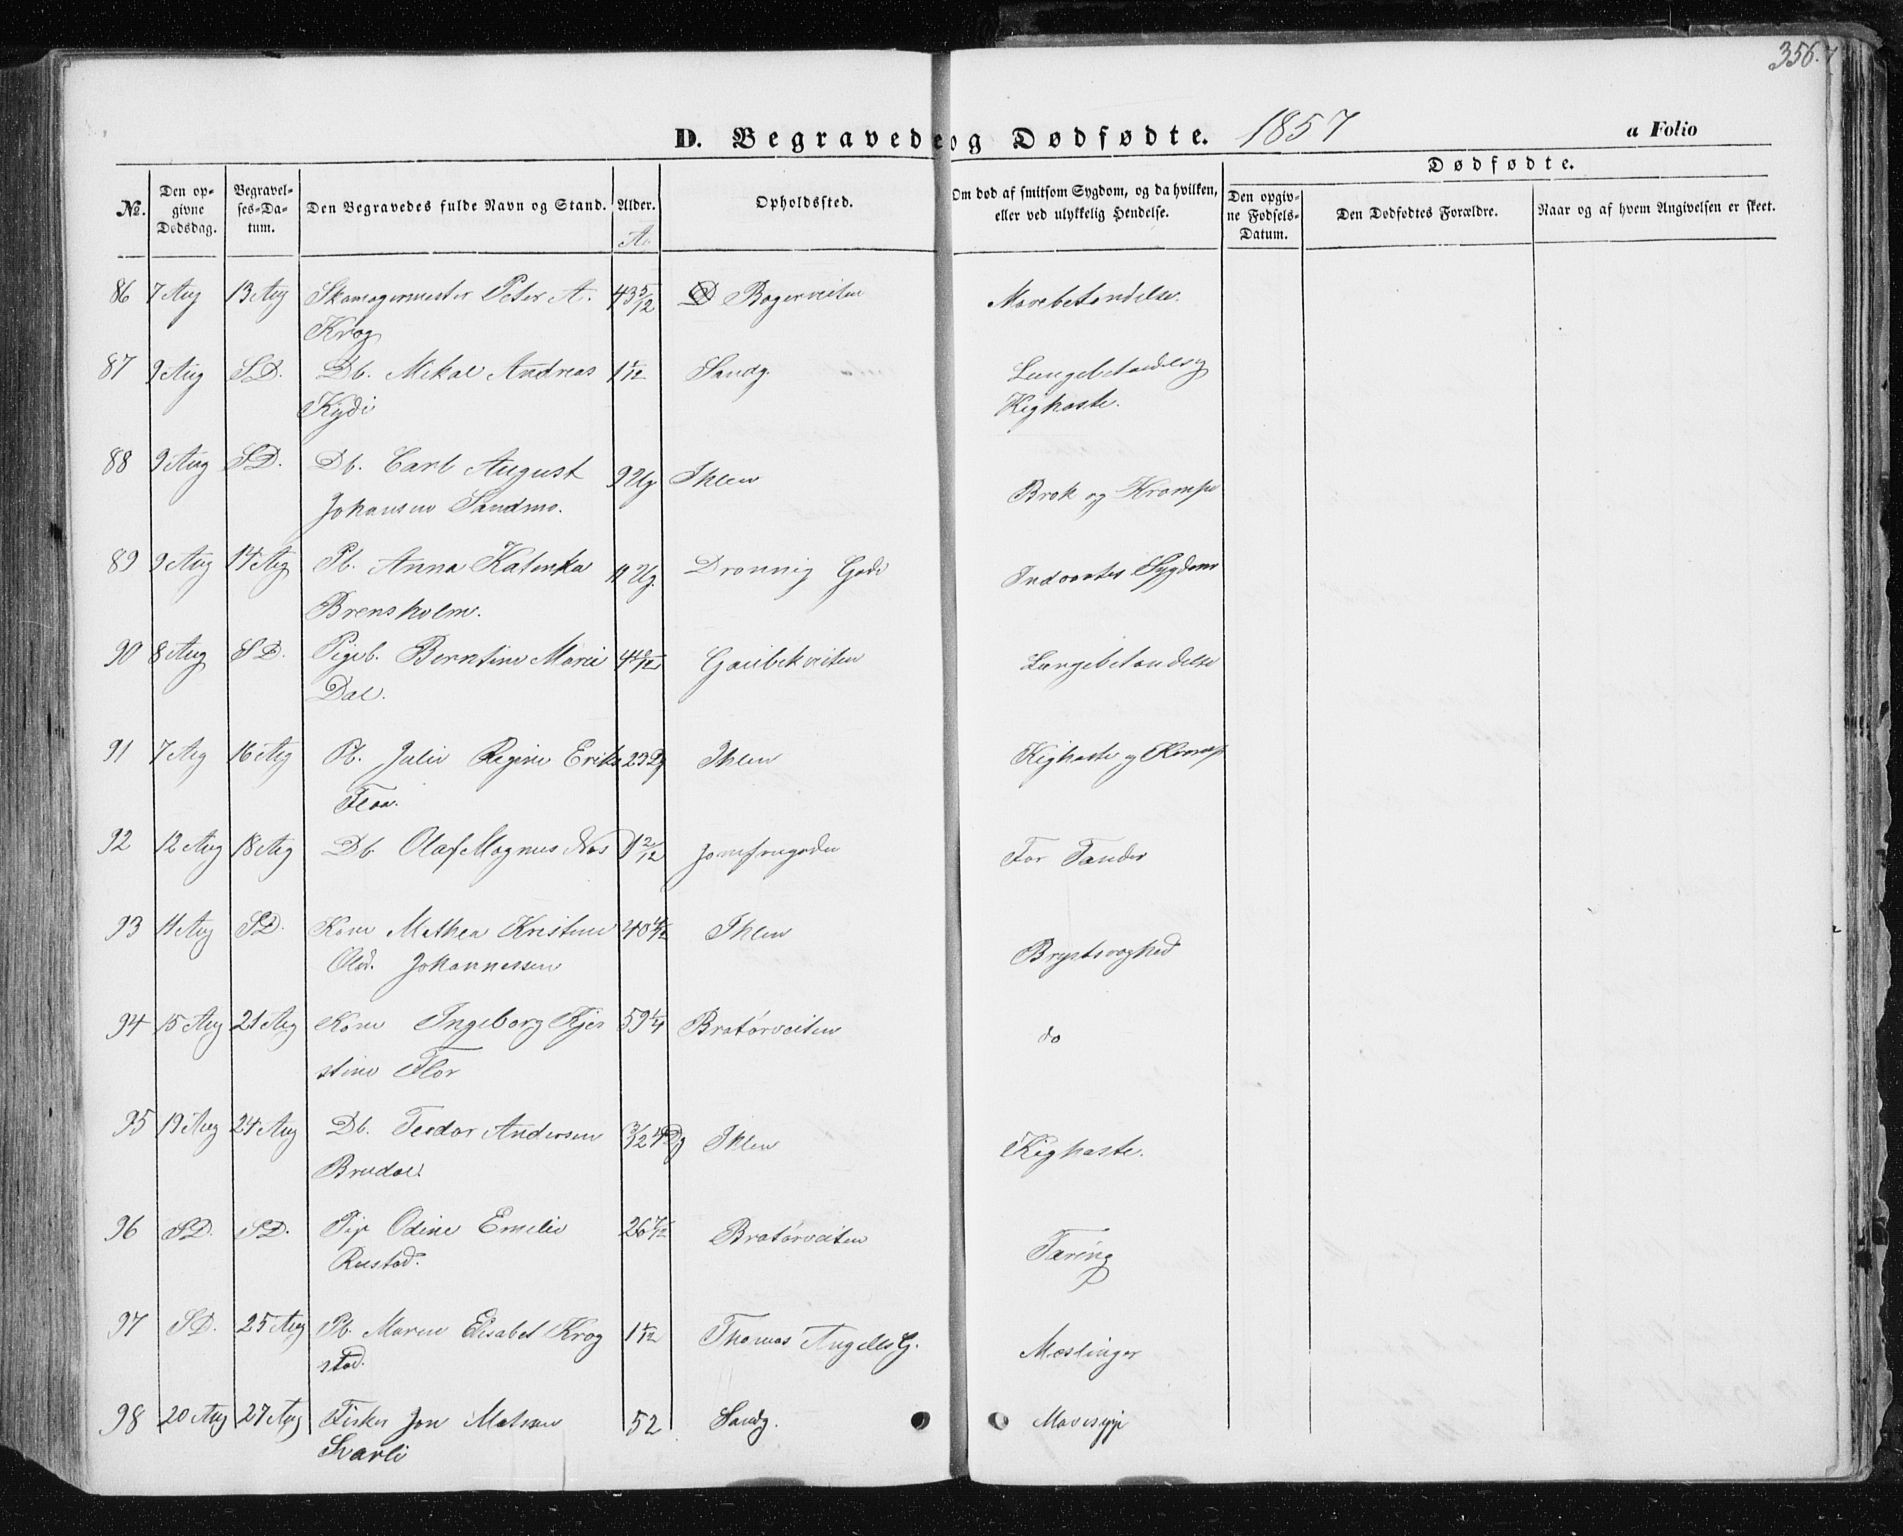 356.
D. Begravede og Dødfødte. 1857 a Folio
No. Den opgivne Dødsdag. Begravelses-Datum. Den Begravedes fulde Navn og Stand. Alder. Opholdssted. Om død af smitsom Sygdom, og da hvilken, eller ved ulykkelig Hendelse. Dødfødte.
Den opgivne Fødsels-Datum. Den Dødfødtes Forældre. Naar og af hvem Angivelsen er skeet.
86 7 Aug 13 Aug Skomagermester Peter A. 43 5/12 Bagerveiten Mavebetendelse.
Krog
87 9 Aug SD. Db. Mikal Andreas 1 1/12 Sandg. Lungebetendels og
Kydi Kighoste.
88 9 Aug SD. Db. Carl August 9 Ug Ihlen Brok og Krampe
Johansen Sandmo.
89 9 Aug 14 Aug Pb. Anna Katinka 11 Ug. Dronnig Gade Indvortes Sygdom
Brensholm.
90 8 Aug SD. Pigeb. Berntine Marie Gaubekveiten Lungebetendelse
Dal.
91 7 Aug 16 Aug Pb. Julie Regine Erika 23 Dg Ihlen Kighoste og Kramp
Floa.
92 12 Aug 18 Aug Db. Olaf Magnus Nos 1 2/12 Jomfrugaden For Tænder
93 11 Aug SD. Kone Mathea Kristine Ihlen Brystsvaghed
Olsd. Johannessen
94 15 Aug 21 Aug Kone Ingeborg Kjer 59 1/4 Bratørveiten do
stine Flor
95 19 Aug 24 Aug Db. Teodor Andersen 3/12 14 Dg Ihlen Kighoste.
Brudal
96 SD. SD. Pige Odine Emelie 26 7/12 Bratørveiten Tæring
Rustad.
97 SD. 25 Aug Pb. Maren Elisabet Krog 1 1/12 Thomas Angells G. Mæslinger
stad.
98 20 Aug 27 Aug Fisker Jon Matsen 52 Sandg. Mavesyge
Svarli